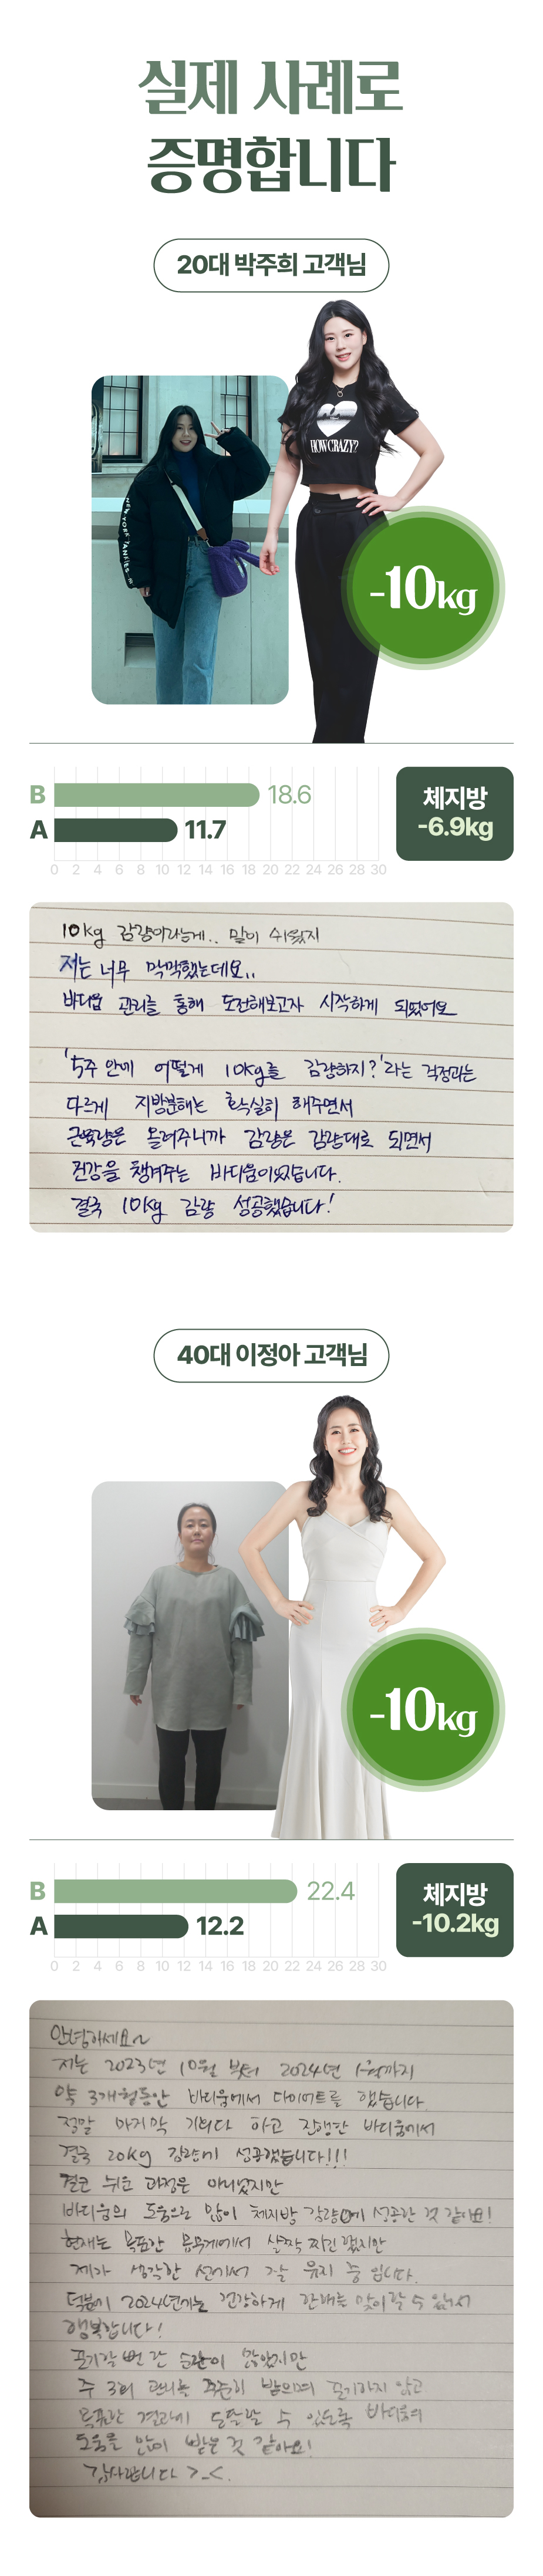 실제 사례로
증명합니다
20대 박주희 고객님
HOW CRAZY?
NEW YORK YANKEES
-10kg
B 18.6
A 11.7
0 2 4 6 8 10 12 14 16 18 20 22 24 26 28 30
체지방
-6.9kg
10kg 감량이라는게.. 말이 쉬웠지
저는 너무 막막했는데요..
바디움 관리를 통해 도전해보고자 시작하게 되었어요
'5주 안에 어떻게 10kg를 감량하지?'라는 걱정과는
다르게 지방분해는 확실히 해주면서
근육량은 늘려주니까 감량은 감량대로 되면서
건강을 챙겨주는 바디움이었습니다.
결국 10kg 감량 성공했습니다!
40대 이정아 고객님
-10kg
B 22.4
A 12.2
0 2 4 6 8 10 12 14 16 18 20 22 24 26 28 30
체지방
-10.2kg
안녕하세요~
저는 2023년 10월 부터 2024년 1월까지
약 3개월동안 바디움에서 다이어트를 했습니다.
정말 마지막 기회다 하고 진행한 바디움에서
결국 20kg 감량에 성공했습니다!!!
결코 쉬운 과정은 아니었지만
바디움의 도움으로 많이 체지방 감량에 성공한 것 같아요!
현재는 목표한 몸무게에서 살짝 찌긴 했지만
제가 생각한 선에서 잘 유지 중 입니다.
덕분에 2024년에는 건강하게 한해를 맞이할 수 있어서
행복합니다!
포기할 뻔 한 순간이 많았지만
주 3회 관리를 꾸준히 받으며 포기하지 않고
목표한 결과에 도달할 수 있도록 바디움의
도움을 많이 받은 것 같아요!
감사합니다 >_<.